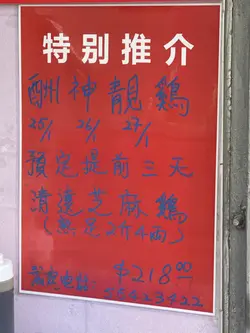 特别推介
酬神靚鷄
25/1 26/1 27/1
預定提前三天
清遠芝麻鷄
(熟足2斤4両)
$218.00
電話:
23422